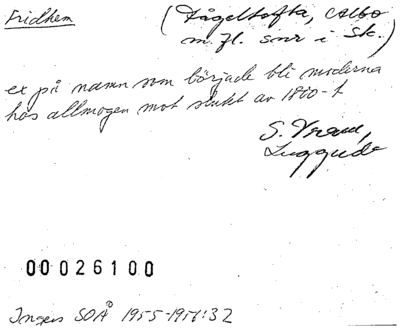 Fridhem
(Fågeltofta, Albo
m. fl. snr i Sk.)
ex på namn som började bli moderna
hos allmogen mot slutet av 1800-t
S. Vram,
Luggude
00026100
Ingers SOÅ 1955-1957:32